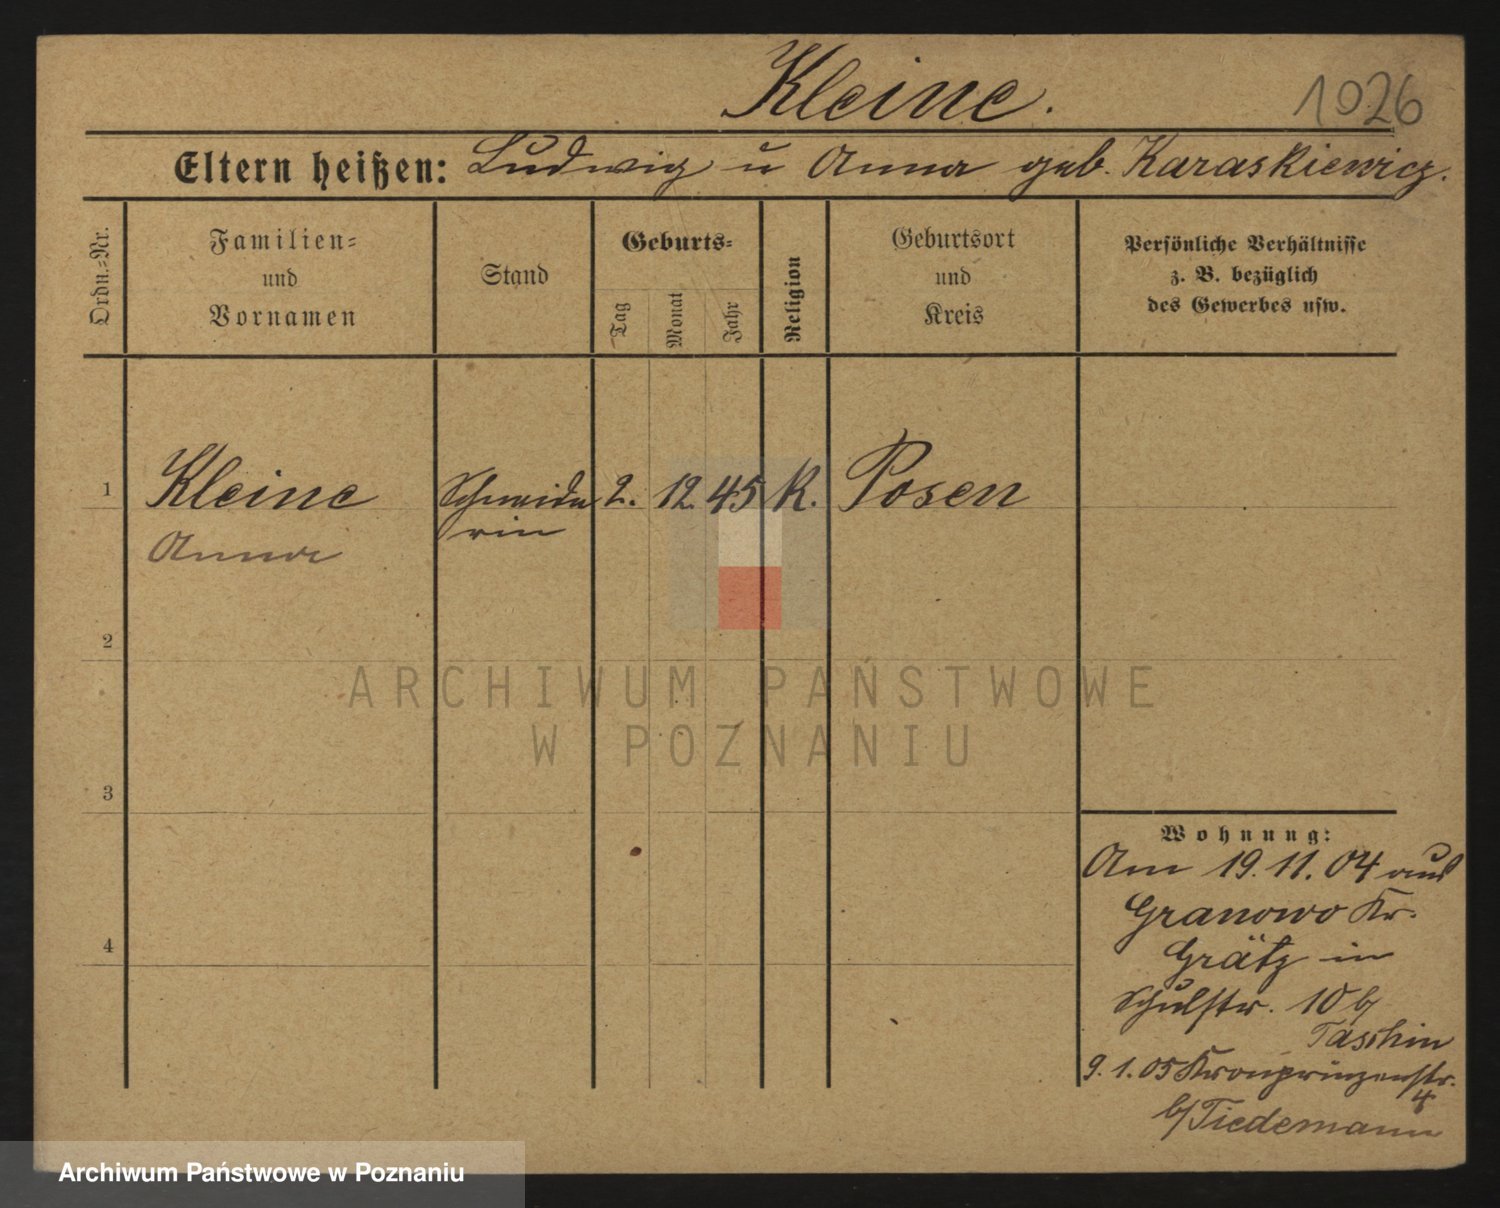 Kleine.
1026
Eltern heißen: Ludwig u Anna geb. Karaskiewicz.
Ordn.-Nr.
Familien-
und
Vornamen
Stand
Geburts-
Tag
Monat
Jahr
Religion
Geburtsort
und
Kreis
Persönliche Verhältnisse
z. B. bezüglich
des Gewerbes usw.
1 Kleine Schneide 2. 12. 45 K. Posen
Anna rin
2
3
4
ARCHIWUM PAŃSTWOWE
W POZNANIU
Wohnung:
Am 19.11.04 aus
Granowo Kr.
Grätz in
Schulstr. 10 b/
Taschin
9.1.05 Kronprinzenstr.
4
b/ Tiedemann
Archiwum Państwowe w Poznaniu